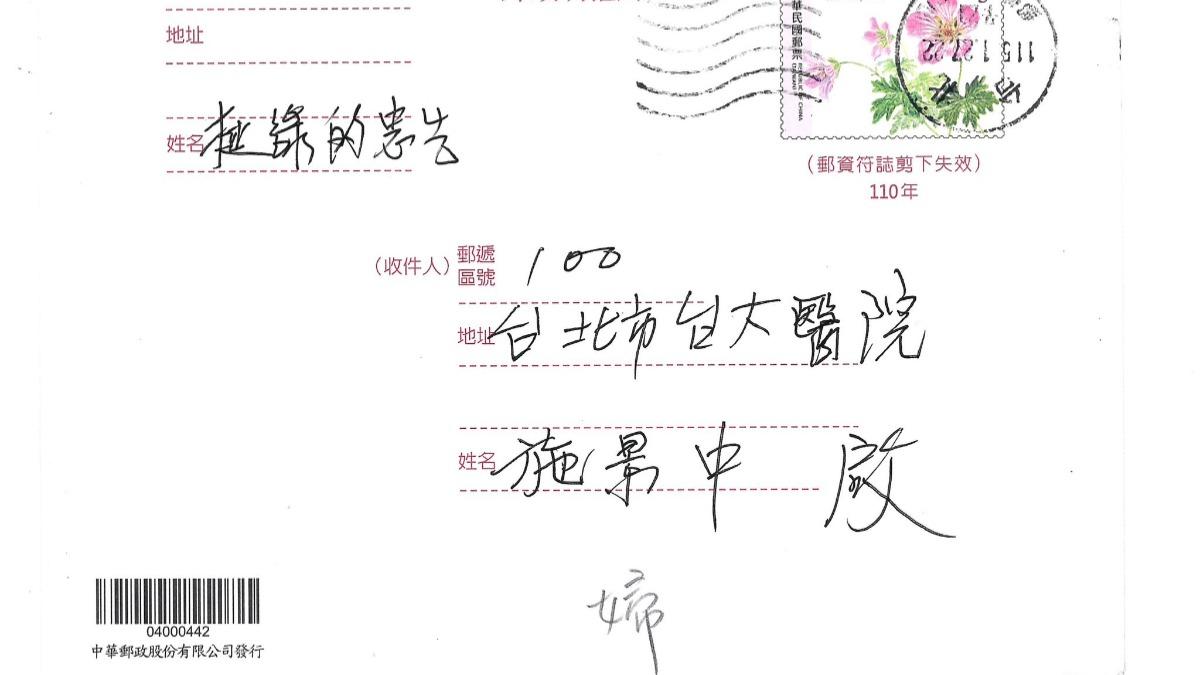 地址
中華民國郵票 REPUBLIC OF CHINA
115.1.27.22
姓名 挺綠的忠告
（郵資符誌剪下失效）
110年
（收件人）郵遞區號 100
地址 台北市台大醫院
姓名 施景中 啟
婦
04000442
中華郵政股份有限公司發行